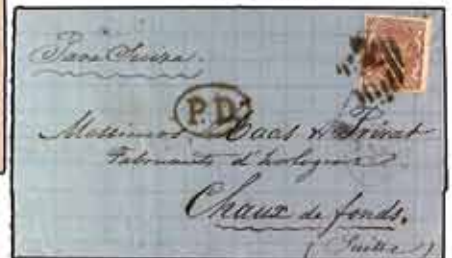 Para Suiza.
P.D.
Messieurs Haas & Privat
Fabricants d'horlogerie
Chaux de fonds.
(Suisse)